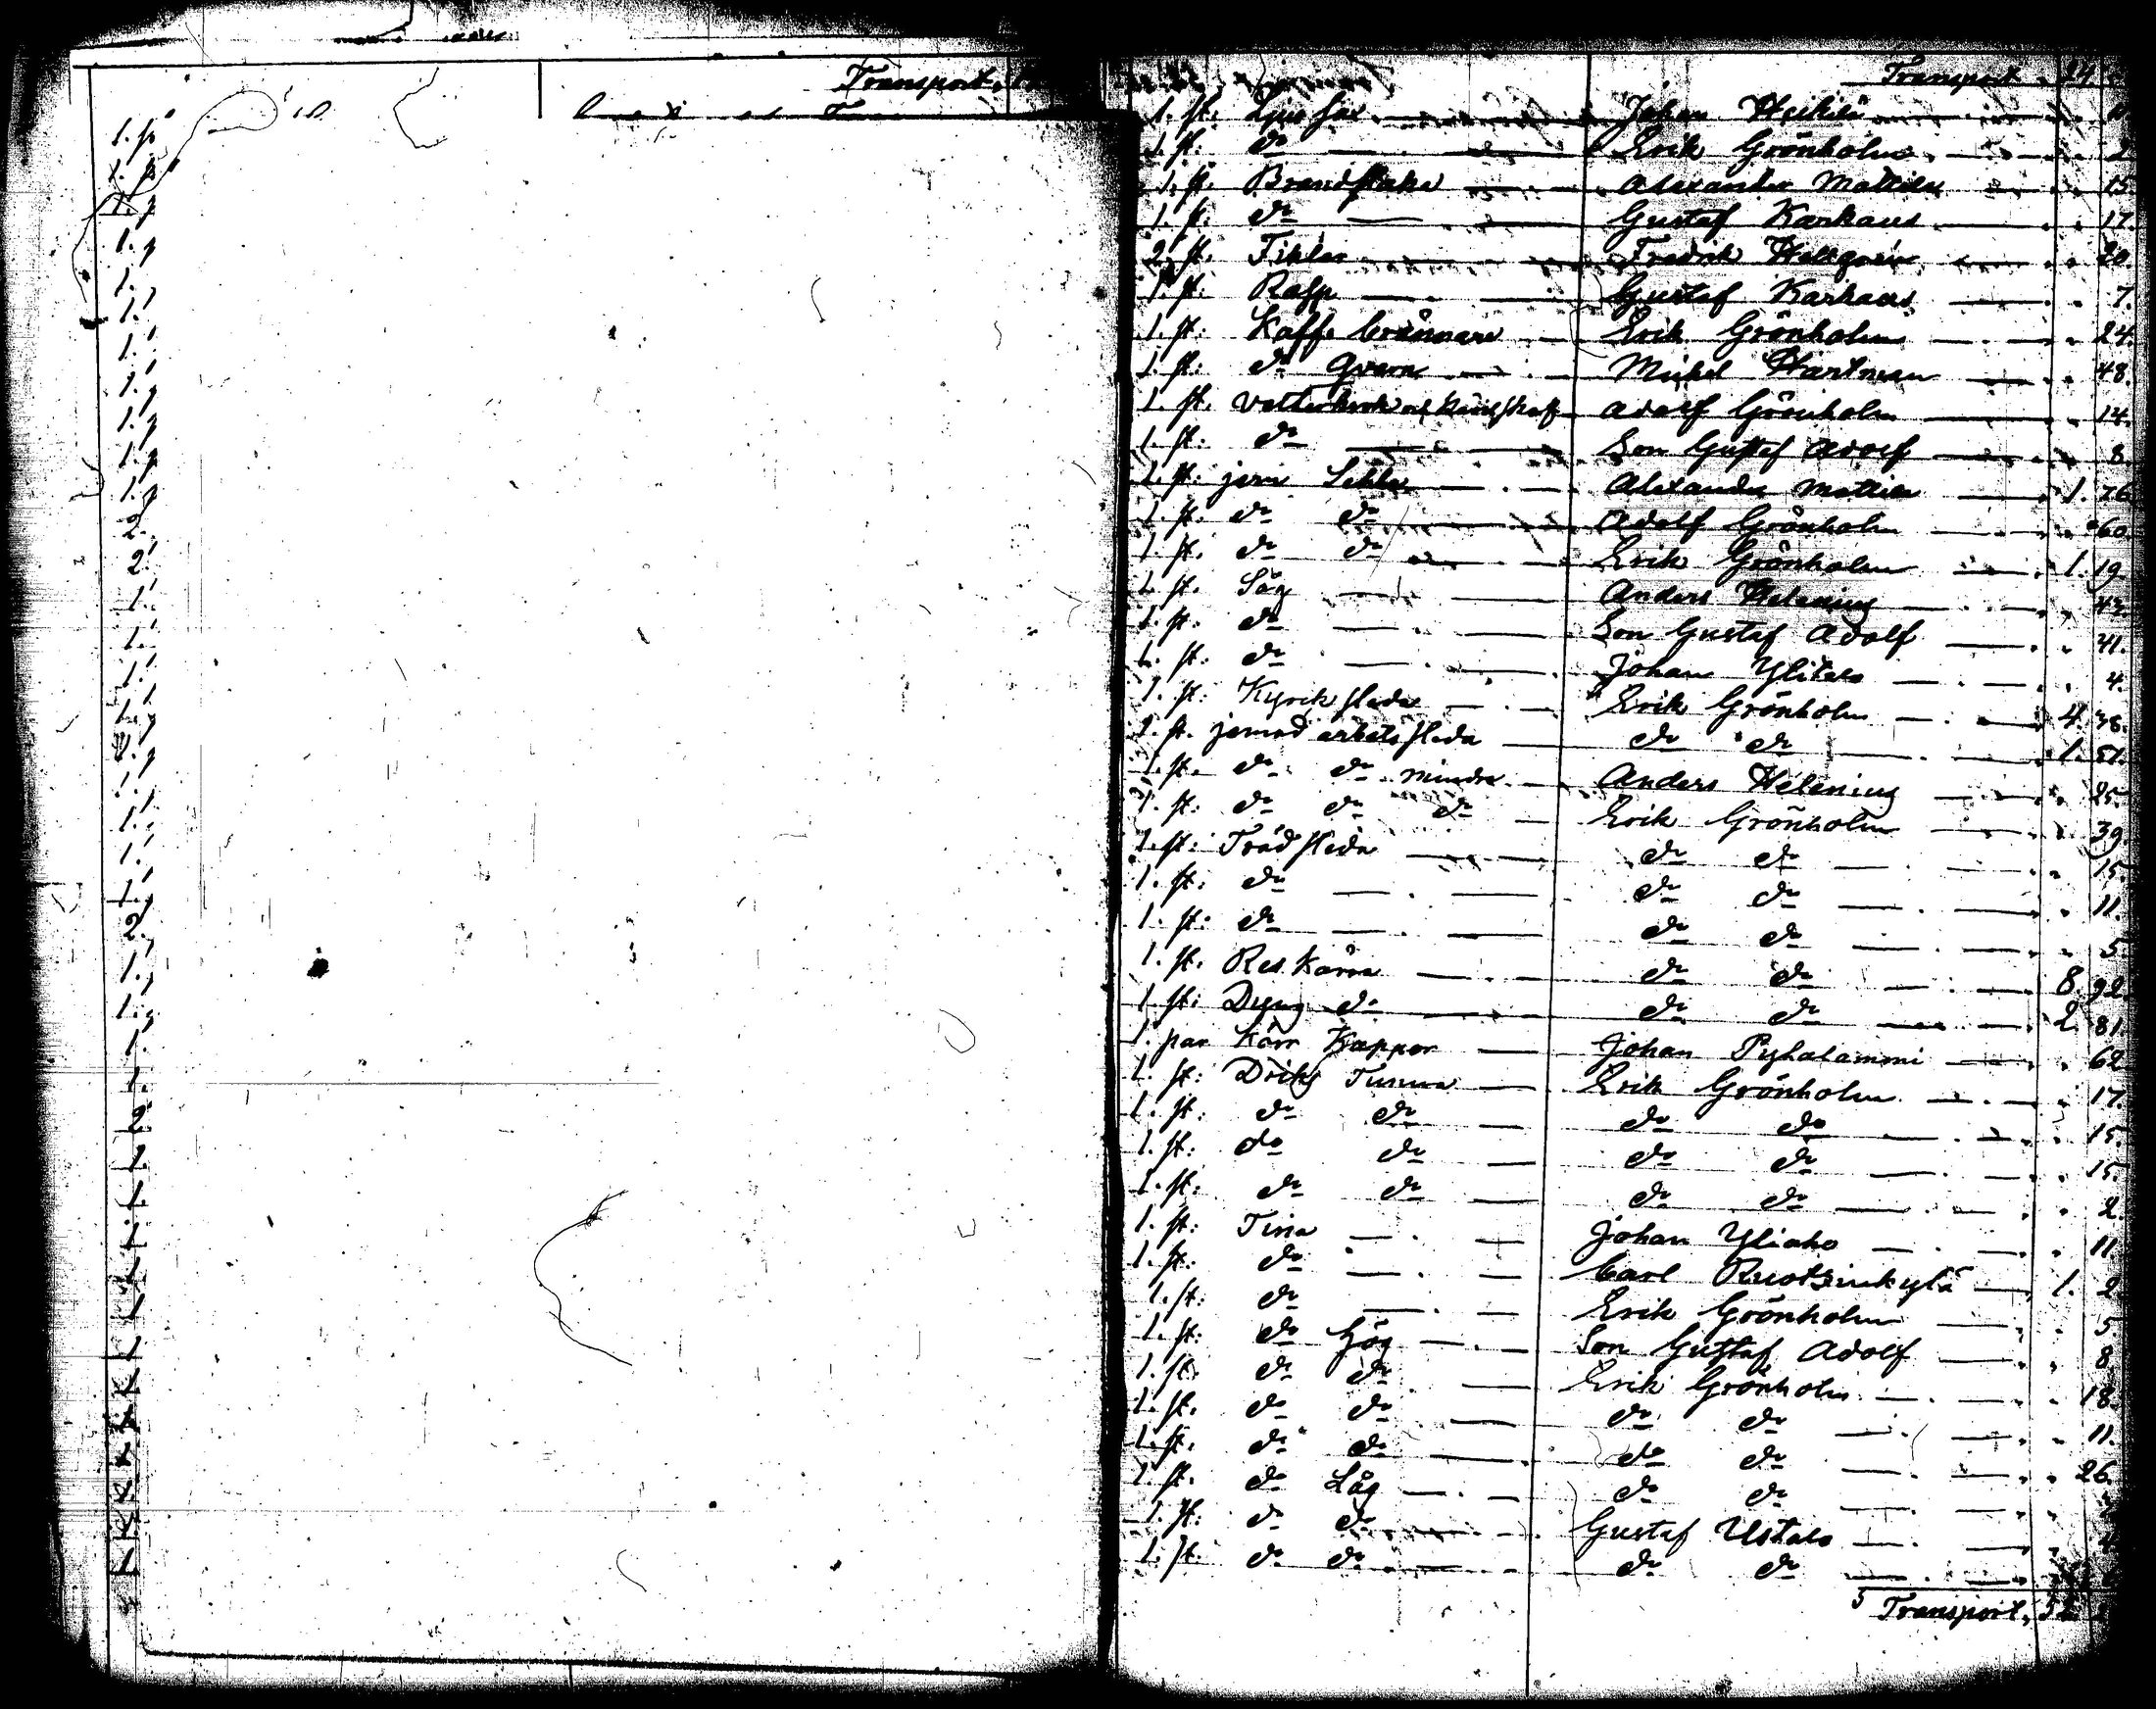 Transport,
1. p
1. p
1. p
1. p
1.
1.
1.
1.
1. p
1. p
1. p
2.
2.
1.
1.
1.
1.
1.
1.
1.
1.
1.
2.
1.
1.
1.
1.
2.
Transport 24
1. st. Ljus sax Johan Heikilä
1. st. do Erik Grönholm 2
1. st. Brandstake Alexander Mattila 15.
1. st. do Gustaf Karhaus 17.
2. st. Fredrik Hellgren 20.
1. st. Rasp Gustaf Karhaus 7.
1. st. Kaffe brännare Erik Grönholm 24.
1. st. do Qvarn Mickel Hartman 48.
1. st. Adolf Grönholm 14.
1. st. do Son Gustaf Adolf 8
1. st. jern Alexander Mattila 1. 76
1. st. do do Adolf Grönholm 60
1. st. do do Erik Grönholm 1. 19.
1. st. Såg Anders Helenius 42.
1. st. do Son Gustaf Adolf 41.
1. st. do Johan Ylitalo 4.
1. st. Kyrk släda Erik Grönholm 4. 38.
1. st. jernad arbets släda do do 1. 51.
1. st. do do mindre Anders Helenius 25.
1. st. do do do Erik Grönholm 39
1. st. Träd släda do do 15.
1. st. do do do 11.
1. st. do do do 5
1. st. Res kärra do do 8. 92.
1. st. Dyng do do do 2. 81.
1. par Kärr Kappor Johan Pyhalammi 62
1. st. Dricks Tunna Erik Grönholm 17.
1. st. do do do do 15.
1. st. do do do do 15.
1. st. do do do do 2.
1. st. Tina Johan Yliaho 11.
1. st. do Carl Ruotsinkylä 1. 2
1. st. do Erik Grönholm 5.
1. st. do hög Son Gustaf Adolf 8
1. st. do do Erik Grönholm 18.
1. st. do do do do 11.
1. st. do do do do 26.
1. st. do Låg do do
1. st. do do Gustaf Ustalo
1. st. do do do do
Transport,